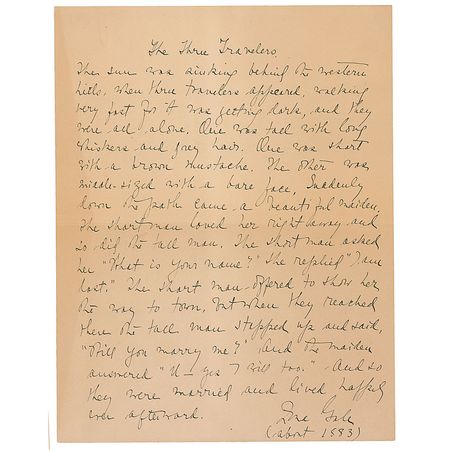 The Three Travelers
The sun was sinking behind the western
hills, when three travelers appeared, walking
very fast for it was getting dark, and they
were all alone. One was tall with long
whiskers and grey hair. One was short
with a brown mustache. The other was
middle-sized with a bare face. Suddenly
down the path came a beautiful maiden.
The short man loved her right away and
so did the tall man. The short man asked
her "What is your name?" She replied "I am
lost." The short man offered to show her
the way to town. But when they reached
there the tall man stepped up and said,
"Will you marry me?" And the maiden
answered "U – yes I will too." And so
they were married and lived happily
ever afterward.
Zona Gale
(about 1883)